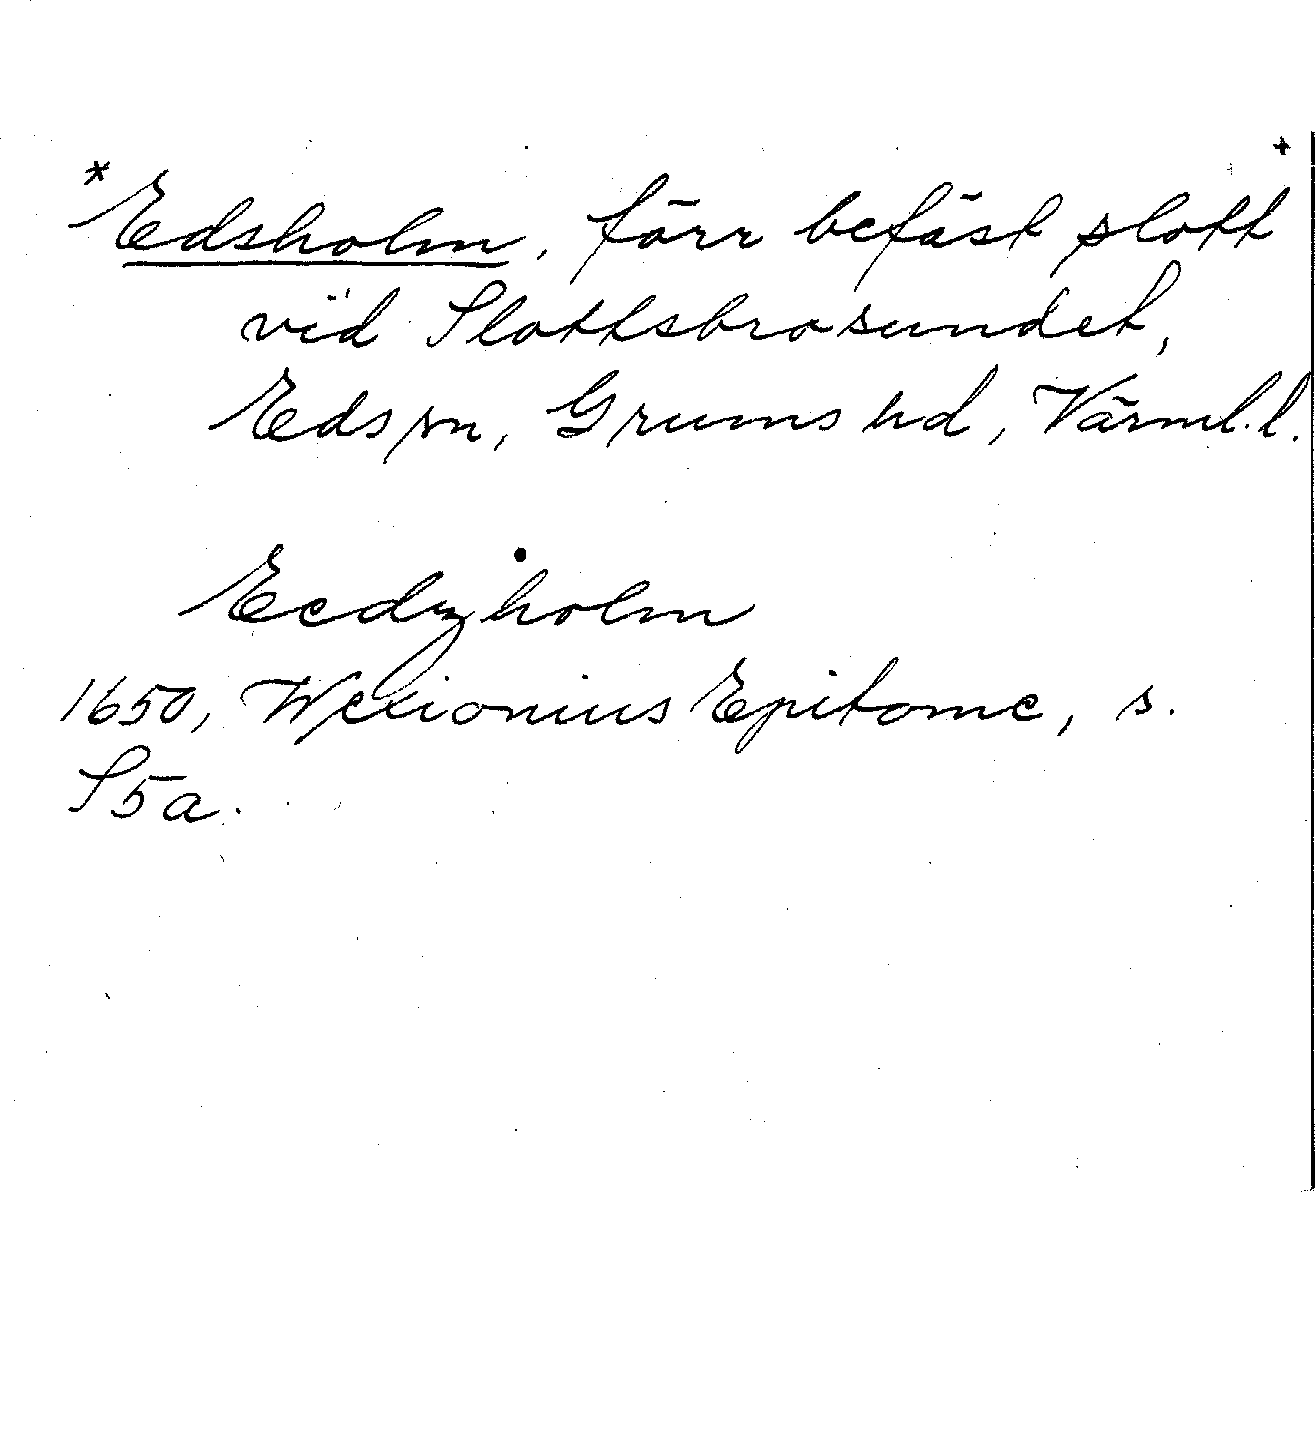 *Edsholm, förr befäst slott +
vid Slottsbrosundet,
Eds sn, Grums hd, Värml. l.
Eedzholm
1650, Wexionius Epitome, s.
S5a.